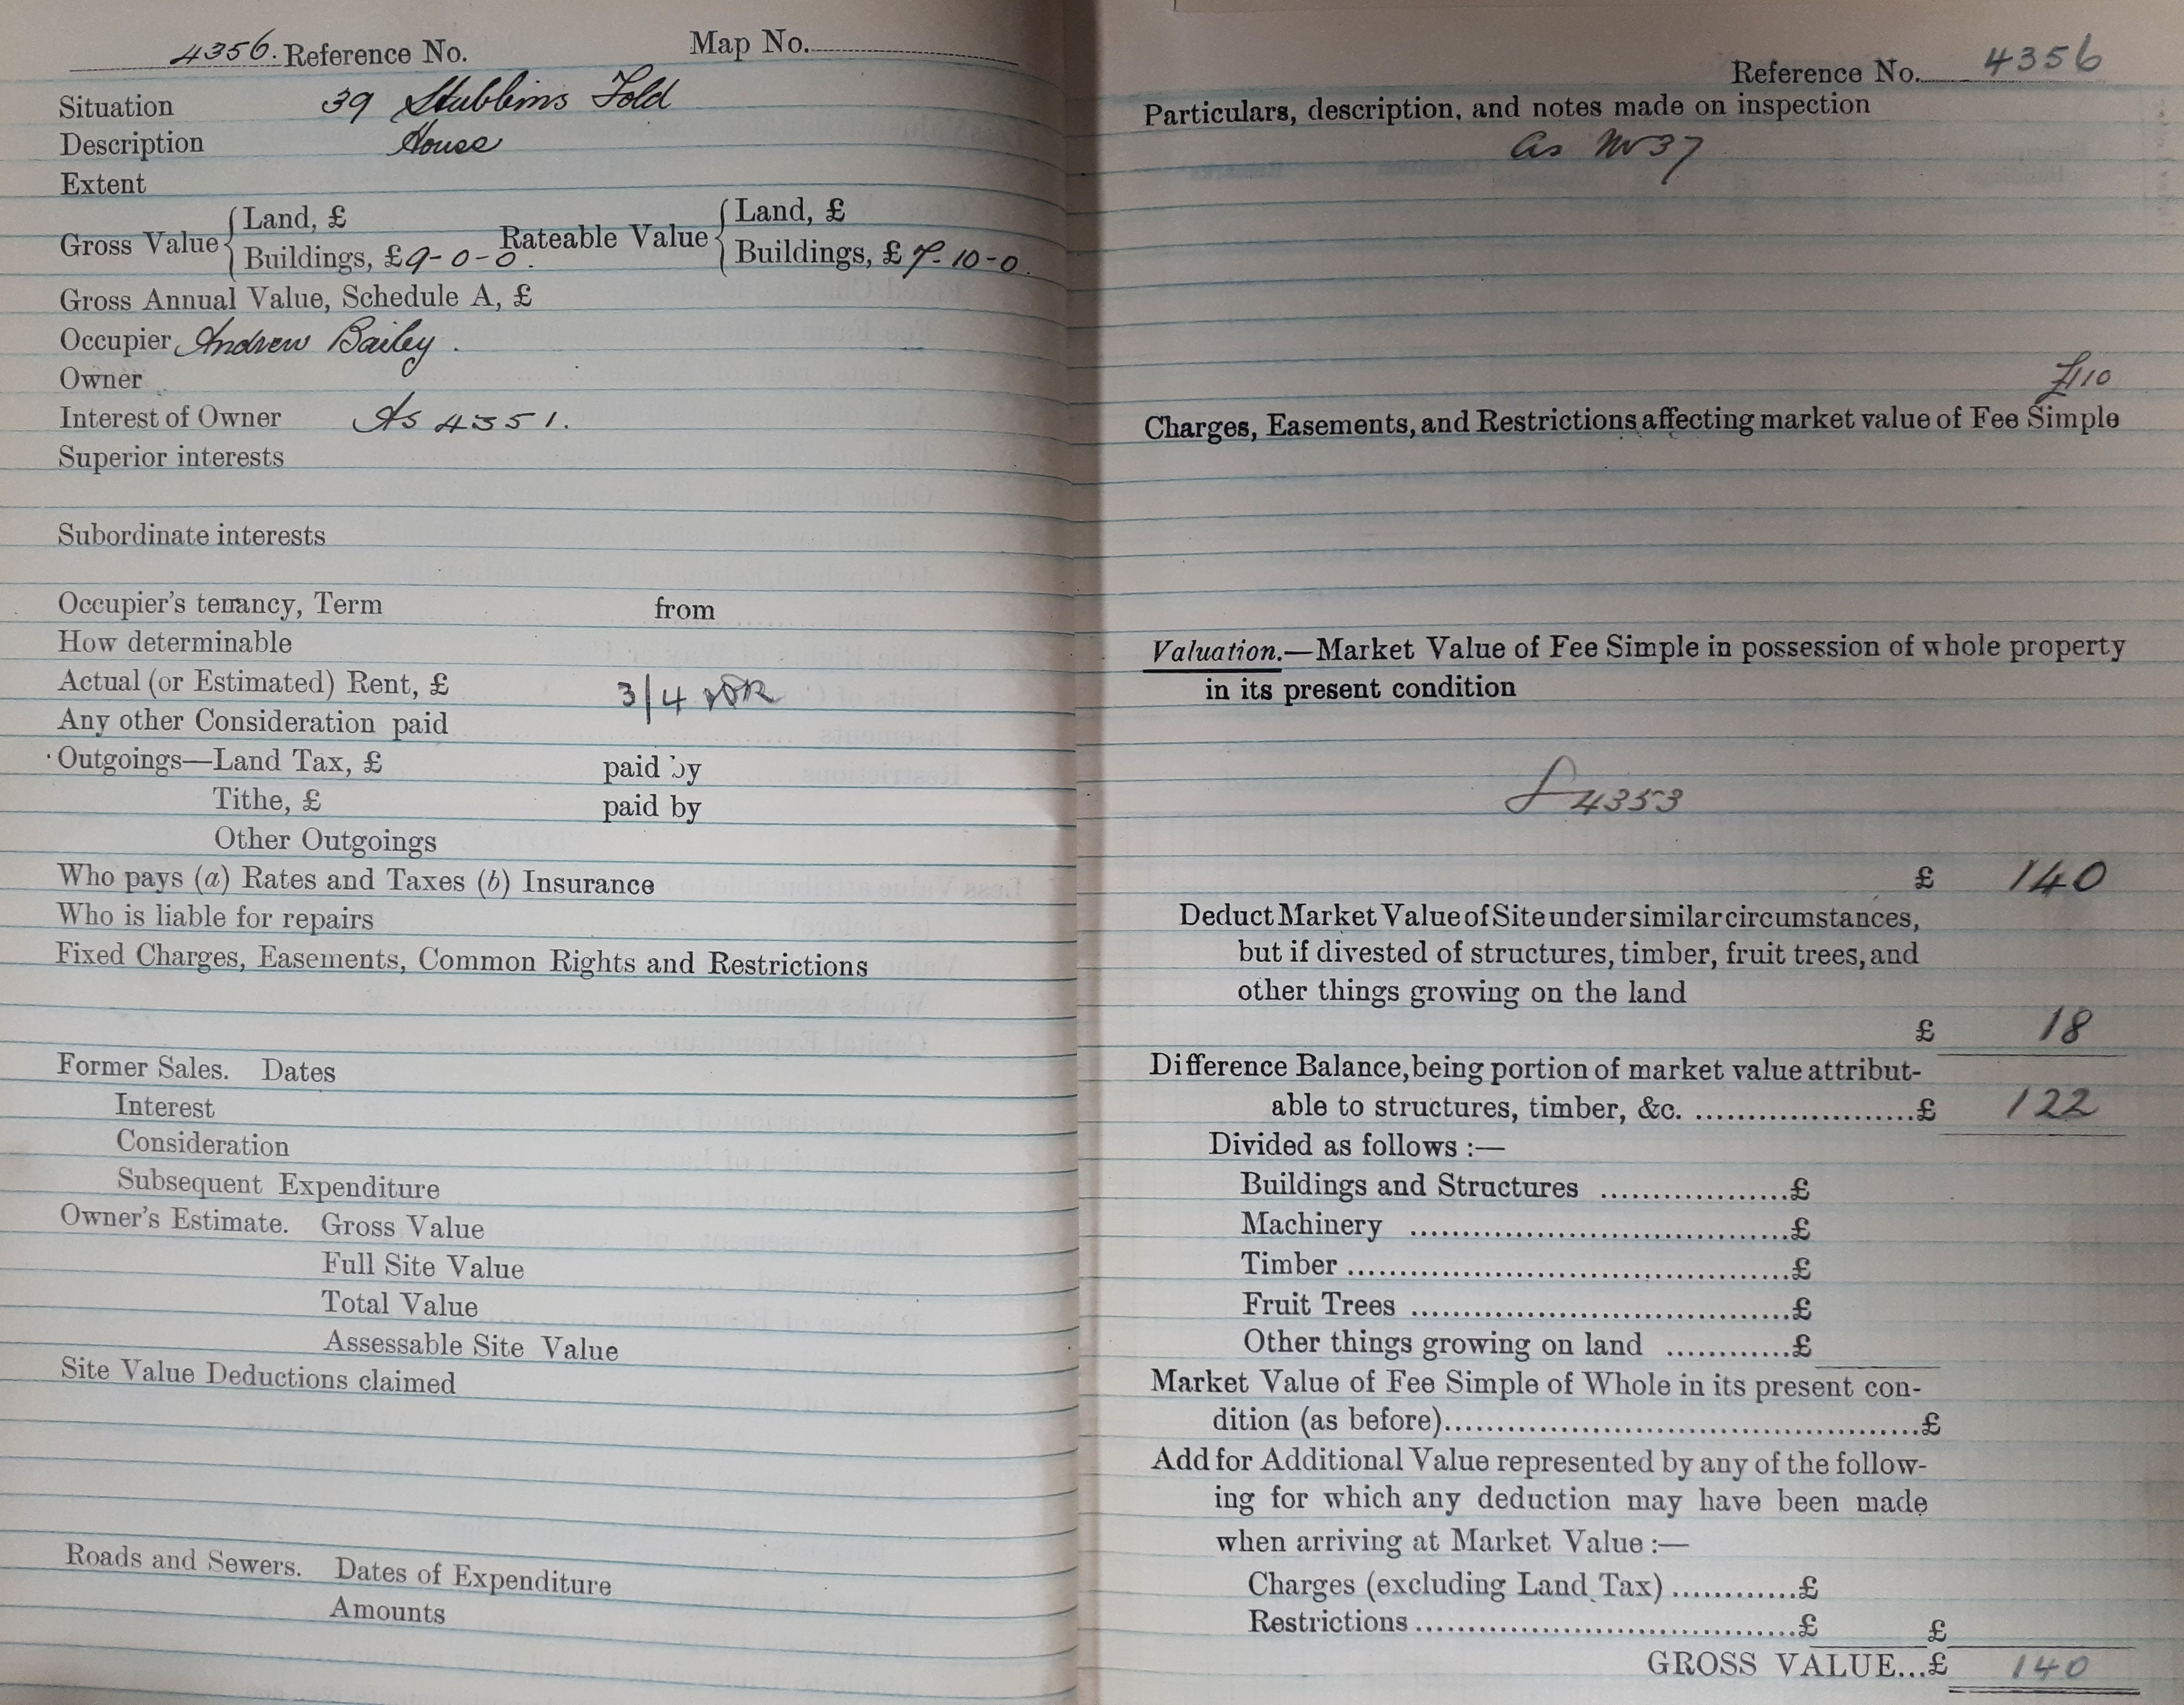 4356. Reference No. Map No.
Situation 39 Stubbins Fold
Description House
Extent
Gross Value { Land, £ Rateable Value { Land, £
Buildings, £ 9-0-0. Buildings, £ 7-10-0.
Gross Annual Value, Schedule A, £
Occupier Andrew Bailey.
Owner
Interest of Owner As 4351.
Superior interests
Subordinate interests
Occupier's tenancy, Term from
How determinable
Actual (or Estimated) Rent, £ 3/4
Any other Consideration paid
Outgoings—Land Tax, £ paid by
Tithe, £ paid by
Other Outgoings
Who pays (a) Rates and Taxes (b) Insurance
Who is liable for repairs
Fixed Charges, Easements, Common Rights and Restrictions
Former Sales. Dates
Interest
Consideration
Subsequent Expenditure
Owner's Estimate. Gross Value
Full Site Value
Total Value
Assessable Site Value
Site Value Deductions claimed
Roads and Sewers. Dates of Expenditure
Amounts
Reference No. 4356
Particulars, description, and notes made on inspection
As No 37
£110
Charges, Easements, and Restrictions affecting market value of Fee Simple
Valuation.—Market Value of Fee Simple in possession of whole property
in its present condition
4353
£ 140
Deduct Market Value of Site under similar circumstances,
but if divested of structures, timber, fruit trees, and
other things growing on the land
£ 18
Difference Balance, being portion of market value attribut-
able to structures, timber, &c. ........................£ 122
Divided as follows :—
Buildings and Structures ...................£
Machinery ......................................£
Timber ............................................£
Fruit Trees ......................................£
Other things growing on land ............£
Market Value of Fee Simple of Whole in its present con-
dition (as before)...............................................£
Add for Additional Value represented by any of the follow-
ing for which any deduction may have been made
when arriving at Market Value :—
Charges (excluding Land Tax) ............£
Restrictions ......................................£ £
GROSS VALUE...£ 140